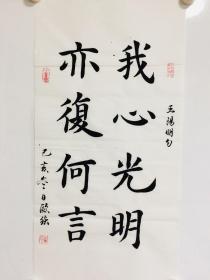 我心光明
亦復何言
王陽明句
己亥冬日